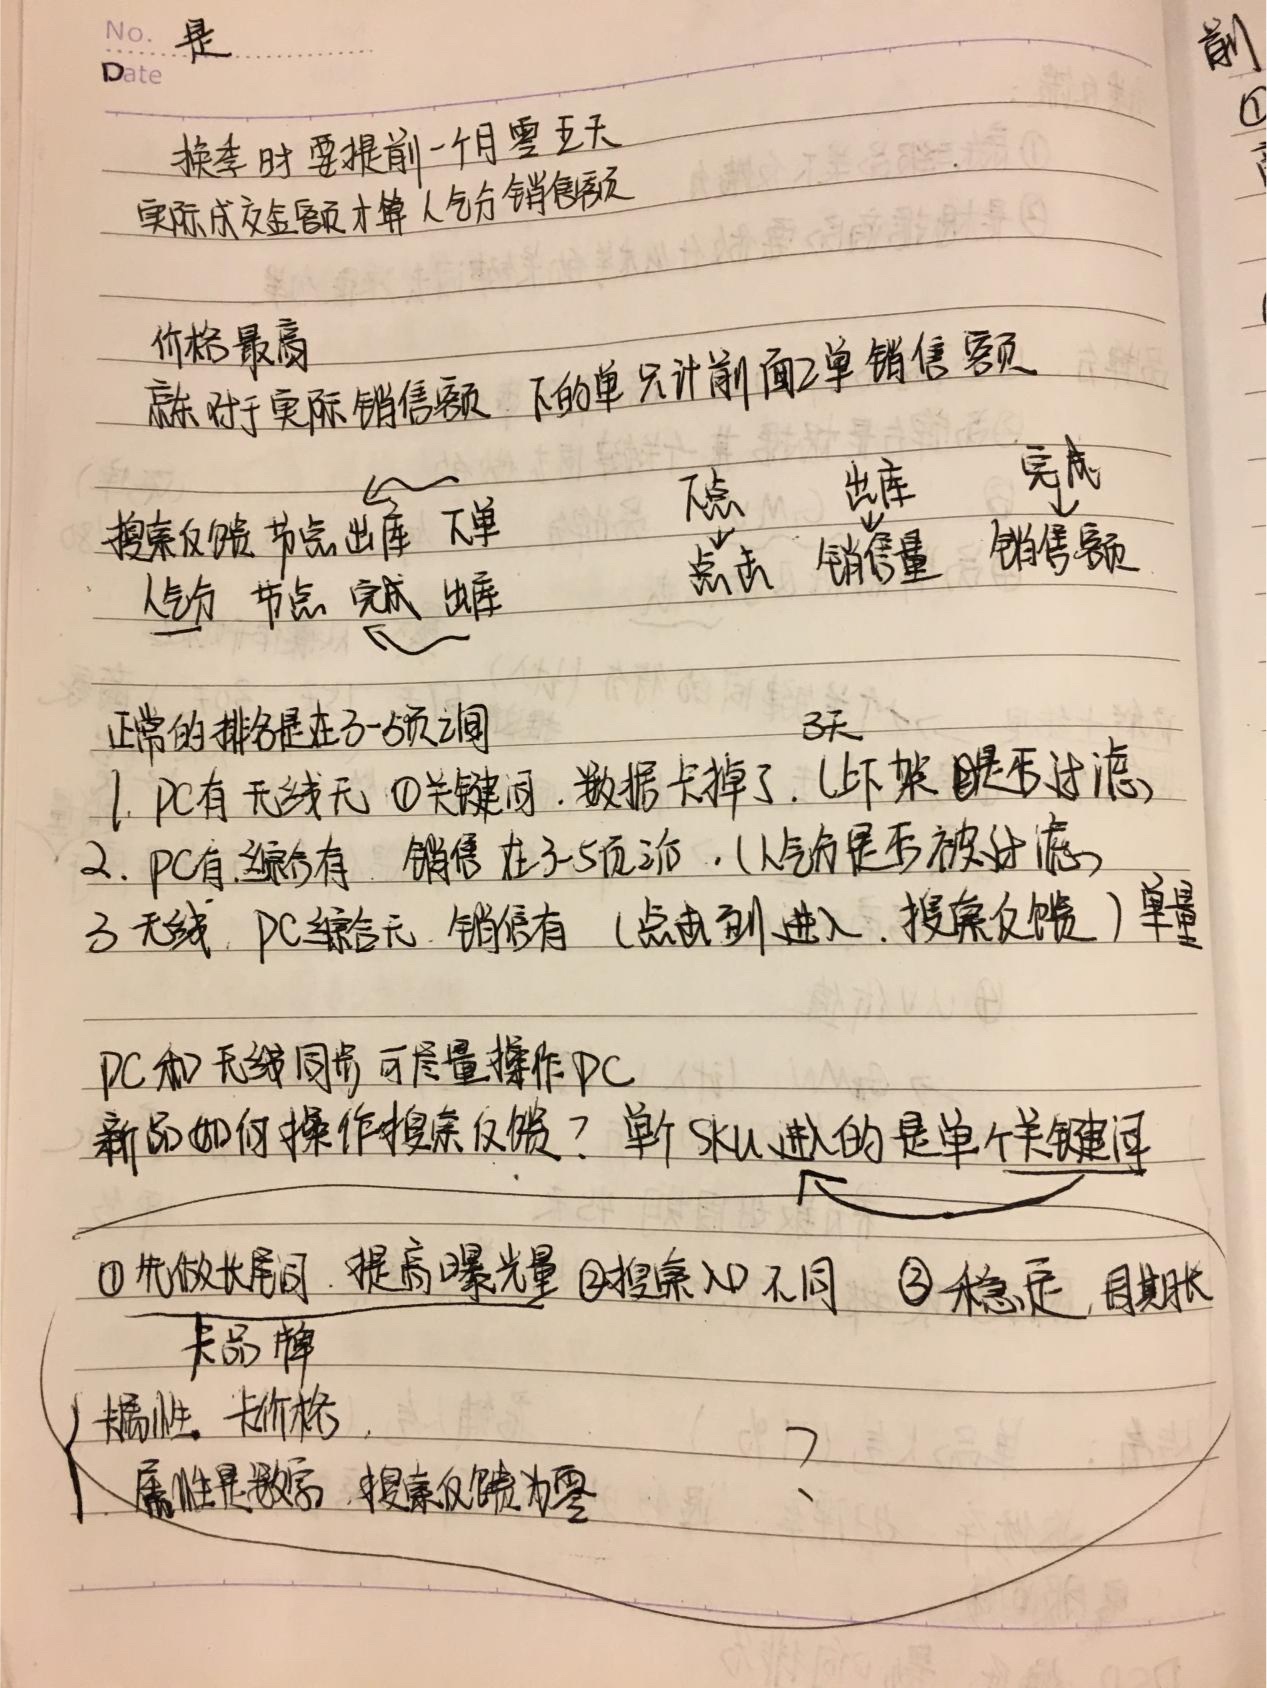 No. 是
Date
换季时要提前一个月零五天
实际成交金额才算人气分销售额
价格最高
京东对于实际销售额 下的单只计前面2单销售额
下点 出库 完成
搜索反馈 节点出库 下单 点击 销售量 销售额
人气分 节点 完成 出库
正常的排名是在3-5页之间
3天
1. PC有无线无 ①关键词.数据卡掉了.(上下架 是否过滤)
2. PC有.综合有 销售在3-5页之后.(人气分是否被过滤)
3 无线.PC综合无.销售有 (点击到进入.搜索反馈)单量
PC和无线同步可尽量操作PC
新品如何操作搜索反馈?单个SKU进入的是单个关键词
①先做长尾词.提高曝光量 ②搜索入口不同 ③稳定,周期长
卡品牌
卡属性.卡价格.
属性是数字.搜索反馈为零
?
前
①